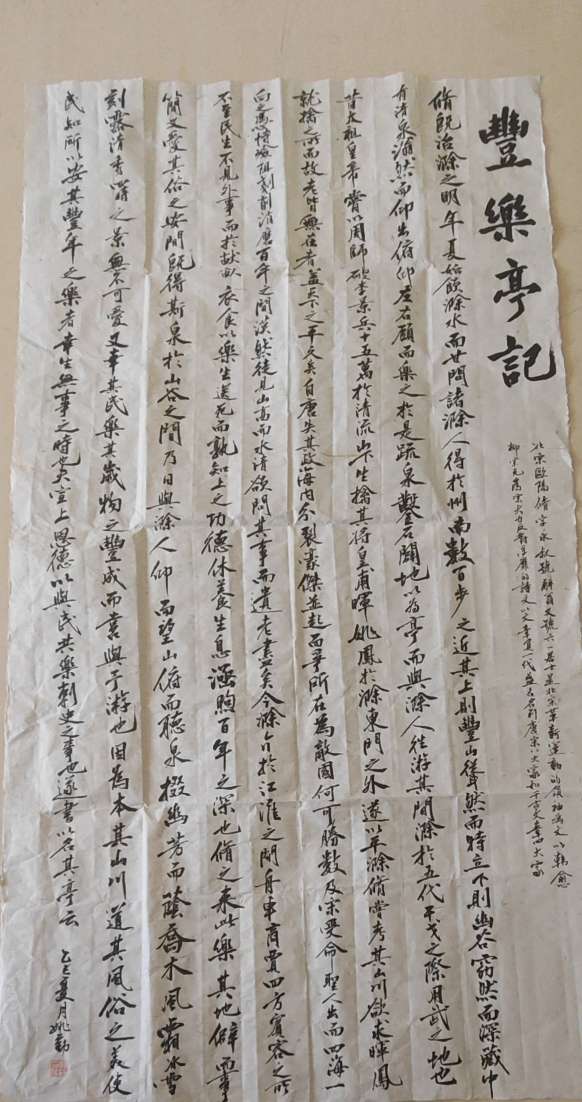 豐樂亭記
北宋歐陽脩字永叔號醉翁又號六一居士是北宋革新運動的領袖為文以韓愈
柳宗元為宗大力反對浮靡的詩文以文章負一代盛名名列唐宋八大家和千古文章四大家
脩既治滁之明年夏始飲滁水而甘問諸滁人得於州南數百步之近其上則豐山聳然而特立下則幽谷窈然而深藏中
有清泉滃然而仰出俯仰左右顧而樂之於是疏泉鑿石闢地以為亭而與滁人往游其間滁於五代干戈之際用武之地也
昔太祖皇帝嘗以周師破李景兵十五萬於清流山下生擒其將皇甫暉姚鳳於滁東門之外遂以平滁脩嘗考其山川欲求暉鳳
就擒之所而故老皆無在者蓋天下之平久矣自唐失其政海內分裂豪傑並起而爭所在為敵國何可勝數及宋受命聖人出而四海一
向之憑恃險阻剗削消磨百年之間漠然徒見山高而水清欲問其事而遺老盡矣今滁介於江淮之間舟車商賈四方賓客之所
不至民生不見外事而於畎畝衣食以樂生送死而孰知上之功德休養生息涵煦百年之深也脩之來此樂其地僻而事
簡又愛其俗之安閒既得斯泉於山谷之間乃日與滁人仰而望山俯而聽泉掇幽芳而蔭喬木風霜冰雪
刻露清秀四時之景無不可愛又幸其民樂其歲物之豐成而喜與予游也因為本其山川道其風俗之美使
民知所以安其豐年之樂者幸生無事之時也夫宣上恩德以與民共樂刺史之事也遂書以名其亭云
乙巳夏月姚勤